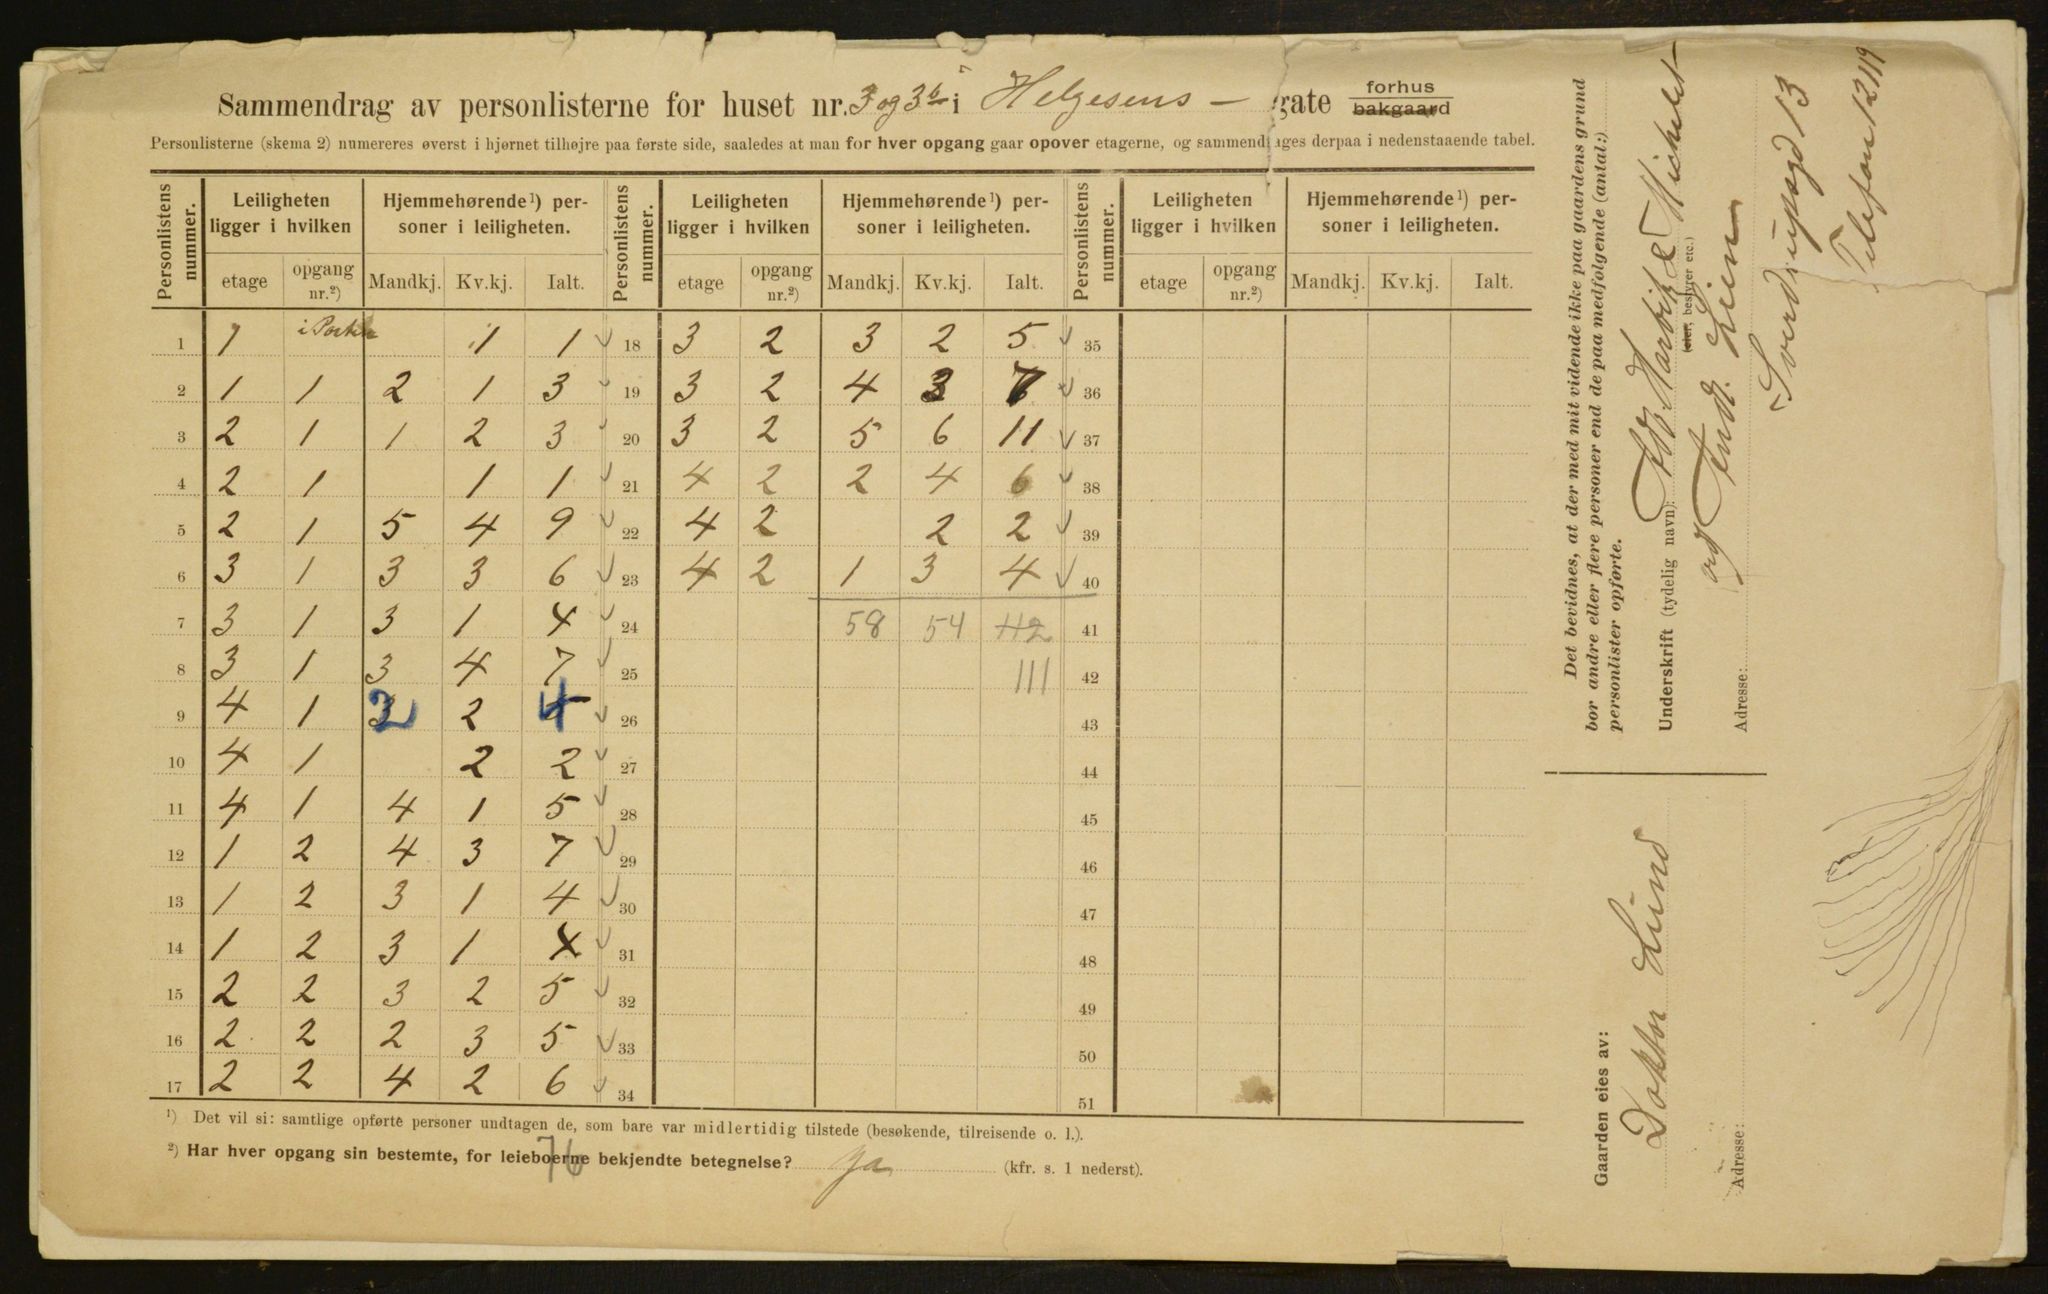 Sammendrag av personlisterne for huset nr. 3 og 3b i Helgesens - gate forhus bakgaard
Personlisterne (skema 2) numereres øverst i hjørnet tilhøjre paa første side, saaledes at man for hver opgang gaar opover etagerne, og sammendrages derpaa i nedenstaaende tabel.
Personlistens nummer. Leiligheten ligger i hvilken Hjemmehørende¹) personer i leiligheten. Personlistens nummer. Leiligheten ligger i hvilken Hjemmehørende¹) personer i leiligheten. Personlistens nummer. Leiligheten ligger i hvilken Hjemmehørende¹) personer i leiligheten.
etage opgang nr.²) Mandkj. Kv.kj. Ialt. etage opgang nr.²) Mandkj. Kv.kj. Ialt. etage opgang nr.²) Mandkj. Kv.kj. Ialt.
1 1 i Porten 1 1 18 3 2 3 2 5 35
2 1 1 2 1 3 19 3 2 4 3 7 36
3 2 1 1 2 3 20 3 2 5 6 11 37
4 2 1 1 1 21 4 2 2 4 6 38
5 2 1 5 4 9 22 4 2 2 2 39
6 3 1 3 3 6 23 4 2 1 3 4 40
7 3 1 3 1 4 24 58 54 112 41
8 3 1 3 4 7 25 111 42
9 4 1 2 2 4 26 43
10 4 1 2 2 27 44
11 4 1 4 1 5 28 45
12 1 2 4 3 7 29 46
13 1 2 3 1 4 30 47
14 1 2 3 1 4 31 48
15 2 2 3 2 5 32 49
16 2 2 2 3 5 33 50
17 2 2 4 2 6 34 51
¹) Det vil si: samtlige opførte personer undtagen de, som bare var midlertidig tilstede (besøkende, tilreisende o. l.).
²) Har hver opgang sin bestemte, for leieboerne bekjendte betegnelse? Ja (kfr. s. 1 nederst).
76
Det bevidnes, at der med mit vidende ikke paa gaardens grund
bor andre eller flere personer end de paa medfølgende (antal:)
personlister opførte.
Underskrift (tydelig navn): Michelet
(eier, bestyrer etc.)
og Fredr. Lien
Adresse: Sverdrupsgd 13
Telefon 12119
Gaarden eies av:
Doktor Lund
Adresse: